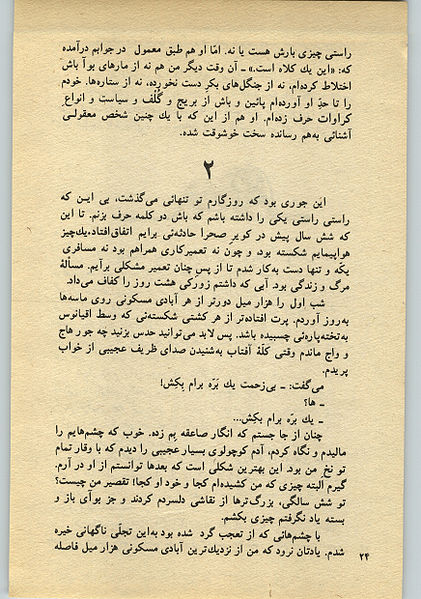 راستی چیزی بارش هست یا نه. امّا او هم طبق معمول در جوابم درآمده
که: «این یك کلاه است.» ــ آن وقت دیگر من هم نه از مارهای بوآ باش
اختلاط کرده‌ام، نه از جنگل‌های بکرِ دست نخورده، نه از ستاره‌ها. خودم
را تا حدِ او آورده‌ام پائین و باش از بریج و گلف و سیاست و انواع
کراوات حرف زده‌ام. او هم از این که با یك چنین شخص معقولی
آشنائی به‌هم رسانده سخت خوشوقت شده.
۲
این جوری بود که روزگارم تو تنهائی می‌گذشت، بی این که
راستی راستی یکی را داشته باشم که باش دو کلمه حرف بزنم. تا این
که شش سال پیش در کویر صحرا حادثه‌ئی برایم اتفاق‌افتاد، یك‌چیز
هواپیمایم شکسته بود. و چون نه تعمیرکاری همراهم بود نه مسافری
یکّه و تنها دست به‌کار شدم تا از پسِ چنان تعمیر مشکلی برآیم. مسألهٔ
مرگ و زندگی بود. آبی که داشتم زورکی هشت روز را کفاف می‌داد.
شب اول را هزار میل دورتر از هر آبادی مسکونی روی ماسه‌ها
به‌روز آوردم. پرت افتاده‌تر از هر کشتی شکسته‌ئی که وسط اقیانوس
به‌تخته‌پاره‌ئی چسبیده باشد. پس لابد می‌توانید حدس بزنید چه جور هاج
و واج ماندم وقتی کلّهٔ آفتاب به‌شنیدن صدای ظریف عجیبی از خواب
پریدم.
می‌گفت: ــ بی‌زحمت یك بَرّه برام بِکِش!
ــ ها؟
ــ یك برّه برام بکش...
چنان از جا جستم که انگار صاعقه بِم زده. خوب که چشم‌هایم را
مالیدم و نگاه کردم، آدم کوچولوی بسیار عجیبی را دیدم که با وقار تمام
تو نخِ من بود. این بهترین شکلی است که بعدها توانستم از او در آرم.
گیرم البته چیزی که من کشیده‌ام کجا و خود او کجا! تقصیر من چیست؟
تو شش سالگی، بزرگ‌ترها از نقاشی دلسردم کردند و جز بوآی باز و
بسته یاد نگرفتم چیزی بکشم.
با چشم‌هائی که از تعجب گرد شده بود به‌این تجلّی ناگهانی خیره
شدم. یادتان نرود که من از نزدیك‌ترین آبادی مسکونی هزار میل فاصله
۲۴